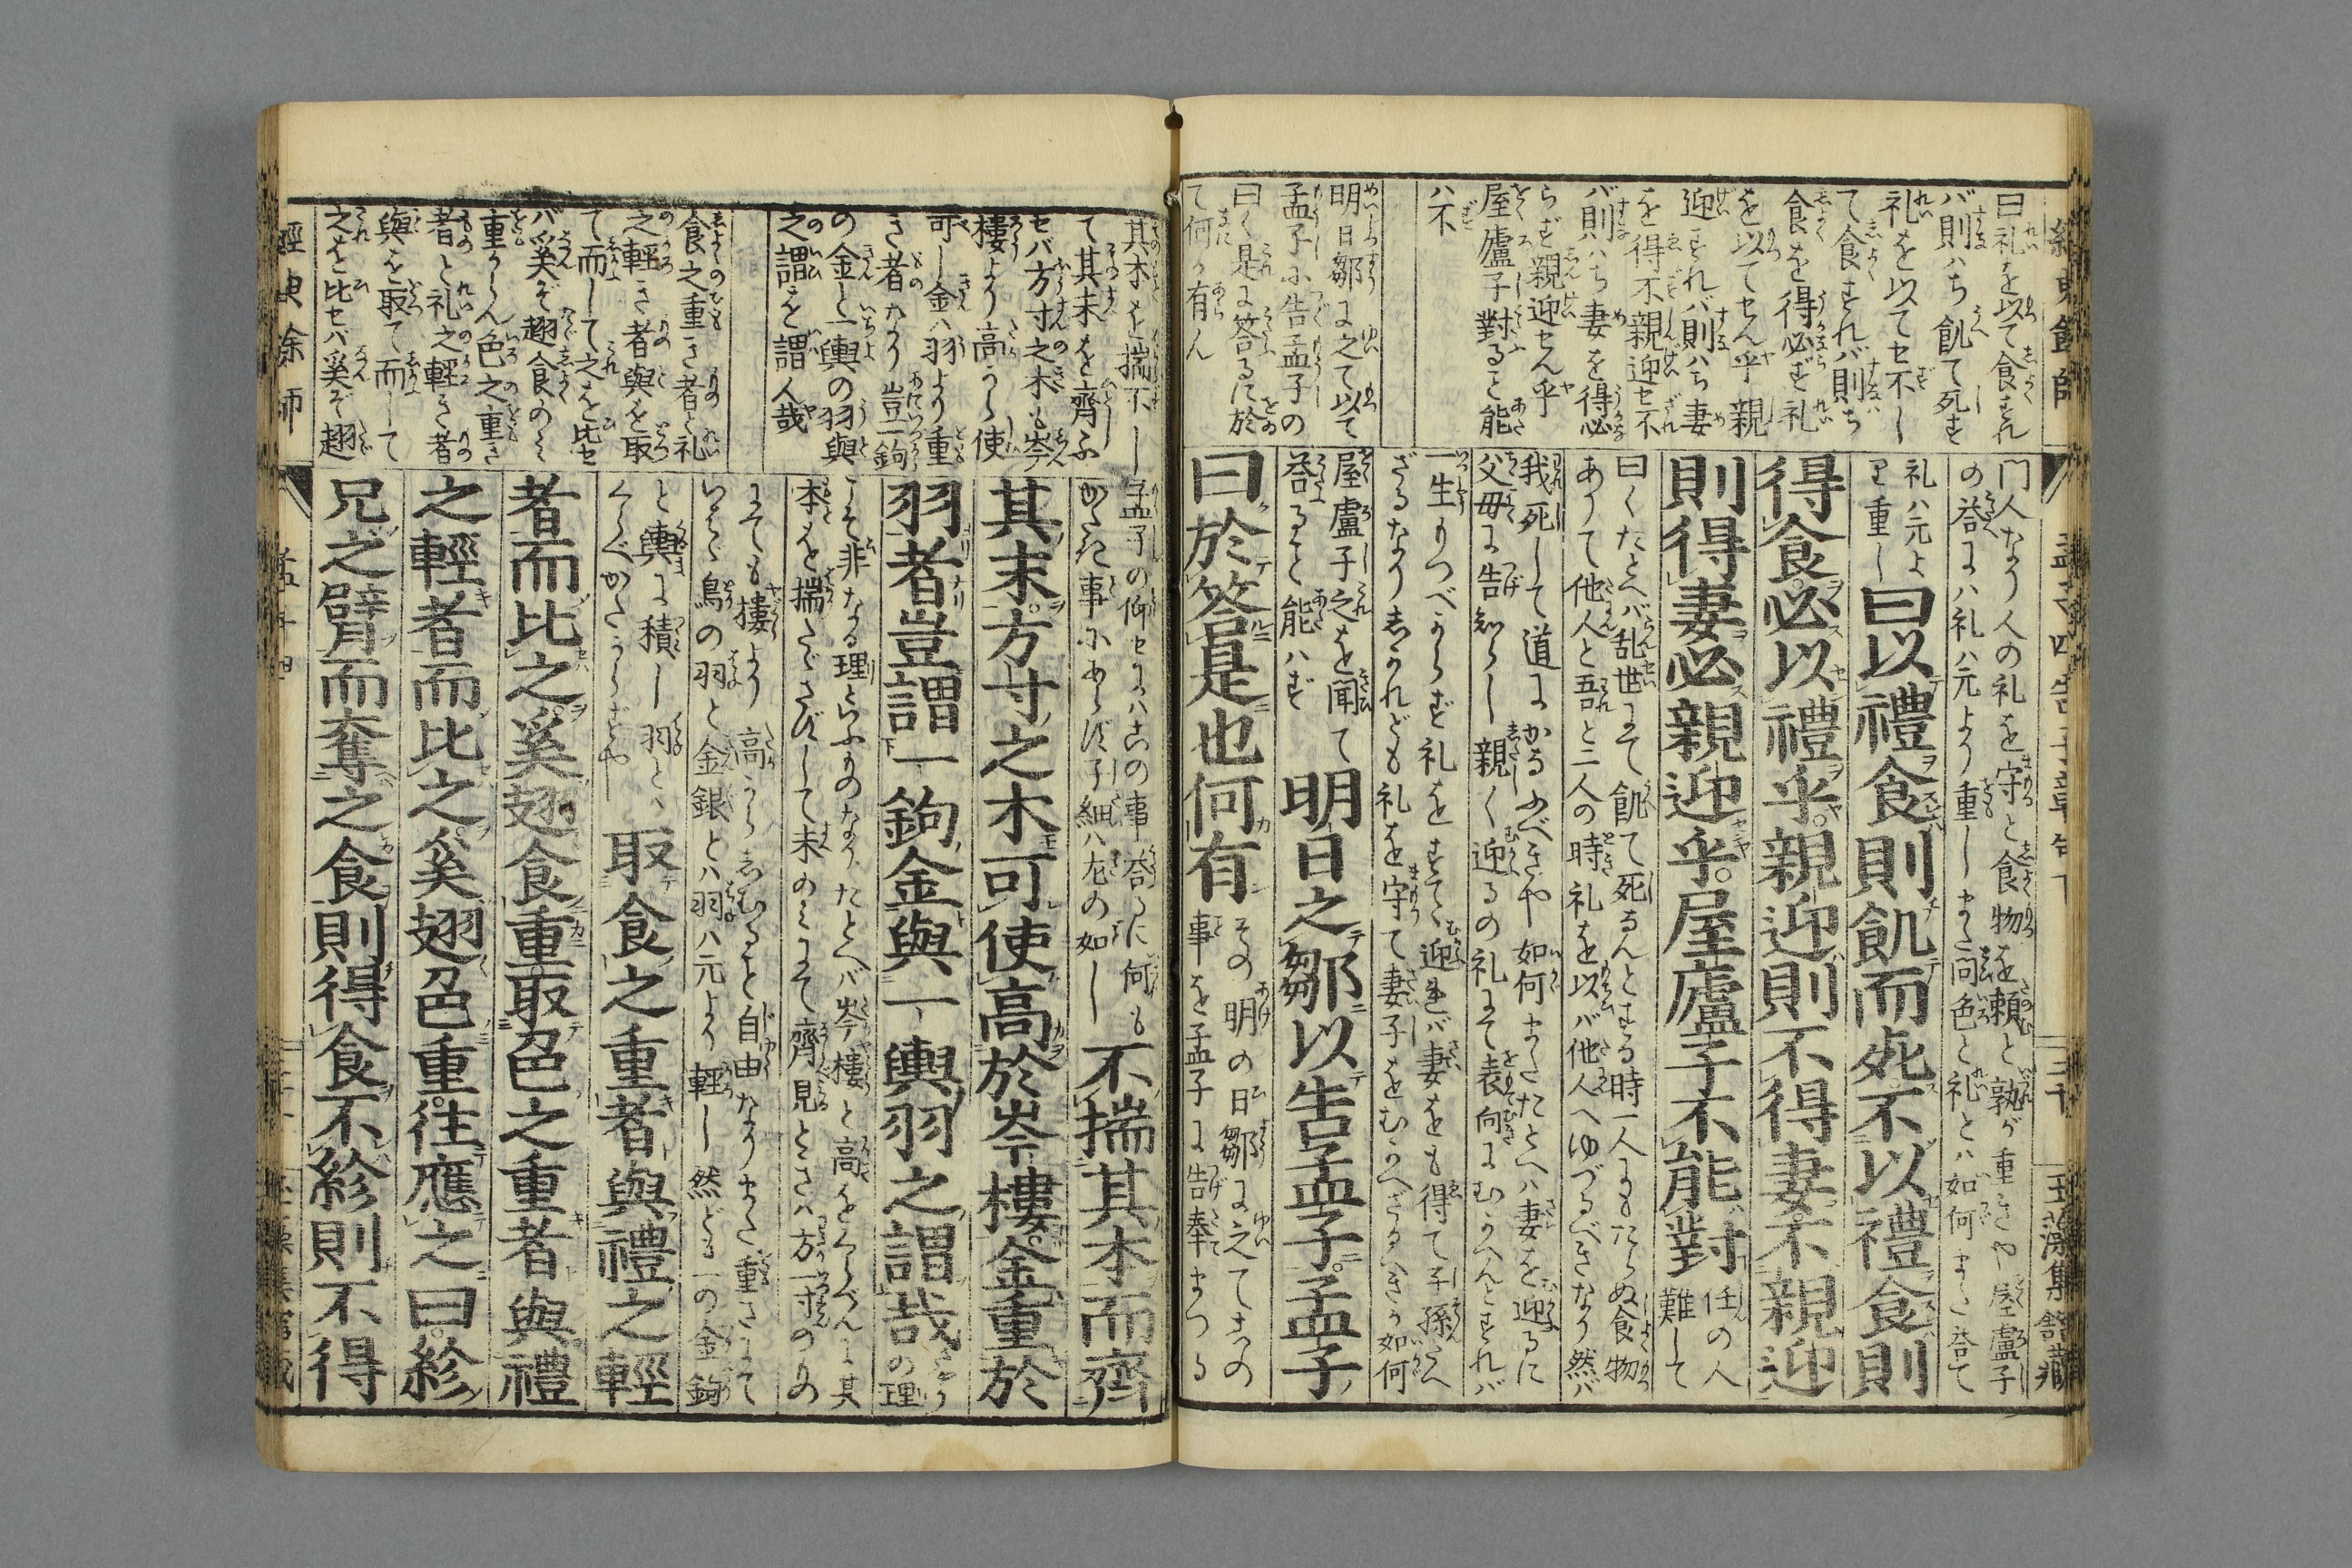 經典餘師
孟子四 告子章句下
三十
玉藻集舘藏
曰礼を以て食すれ
バ則ハち飢て死す
礼を以てセ不し
て食すれバ則ち
食を得必ず礼
を以てセん乎親
迎すれバ則ハち妻
を得不親迎セ不
バ則ハち妻を得必
らず親迎セん乎
屋廬子對ると能
ハ不
明日鄒に之て以て
孟子に告孟子の
曰く是に答るに於
て何か有ん
門人なり人の礼を守と食物を頼と孰が重きや屋廬子
の答にハ礼ハ元より重しまた問色と礼とハ如何また答て
礼ハ元よ
り重し
曰以禮食則飢而死不以禮食則
得食必以禮乎親迎則不得妻不親迎
則得妻必親迎乎屋廬子不能對
任の人
難して
曰くたとへバ乱世にて飢て死るんとする時一人にもたらぬ食物
ありて他人と吾と二人の時礼を以バ他人へゆづるべきなり然バ
我死して道にかるふべきや如何またたとへハ妻を迎るに
父母に告知らし親く迎るの礼にて表向にむかへんとすれバ
一生りつべからず礼をすてゝ迎れバ妻をも得て子孫さへ
ざるなり志かれども礼を守て妻子をむかへざるへきか如何
屋盧子之を聞て
答ると能ハず
明日之鄒以告孟子孟子
曰於答是也何有
その明の日鄒に之てその
事を孟子に告奉まつる
其本を揣不し
て其末を齊ふ
セバ方寸之木も岑
樓より高から使
可し金ハ羽より重
き者なり豈一鉤
の金と一輿の羽與
之謂を謂人哉
食之重き者と礼
之輕き者與を取
て而して之を比セ
バ奚ぞ趐食のミ
重からん色之重き
者と礼之輕き者
與を取て而して
之を比セバ奚ぞ趐
孟子の仰セにハ志の事答るに何も
かたき事にあらず子細ハ左の如し
不揣其本而齊
其末方寸之木可使高於岑樓金重於
羽者豈謂一鉤金與一輿羽之謂哉
こそ非なる理といふものなりたとへバ岑樓と高をくらべんに其
本を揣たゞさずして末のミにて齊見るときハ方一寸のりの
にても樓より高からむると自由なりまた重さにて
いはゞ鳥の羽と金銀とハ羽ハ元より輕し然ども一の金鉤
と輿に積し羽とハ
くらべがたからずや
取食之重者與禮之輕
者而比之奚趐食重取色之重者與禮
之輕者而比之奚趐色重往應之曰紾
兄之臂而奪之食則得食不紾則不得
經典餘師